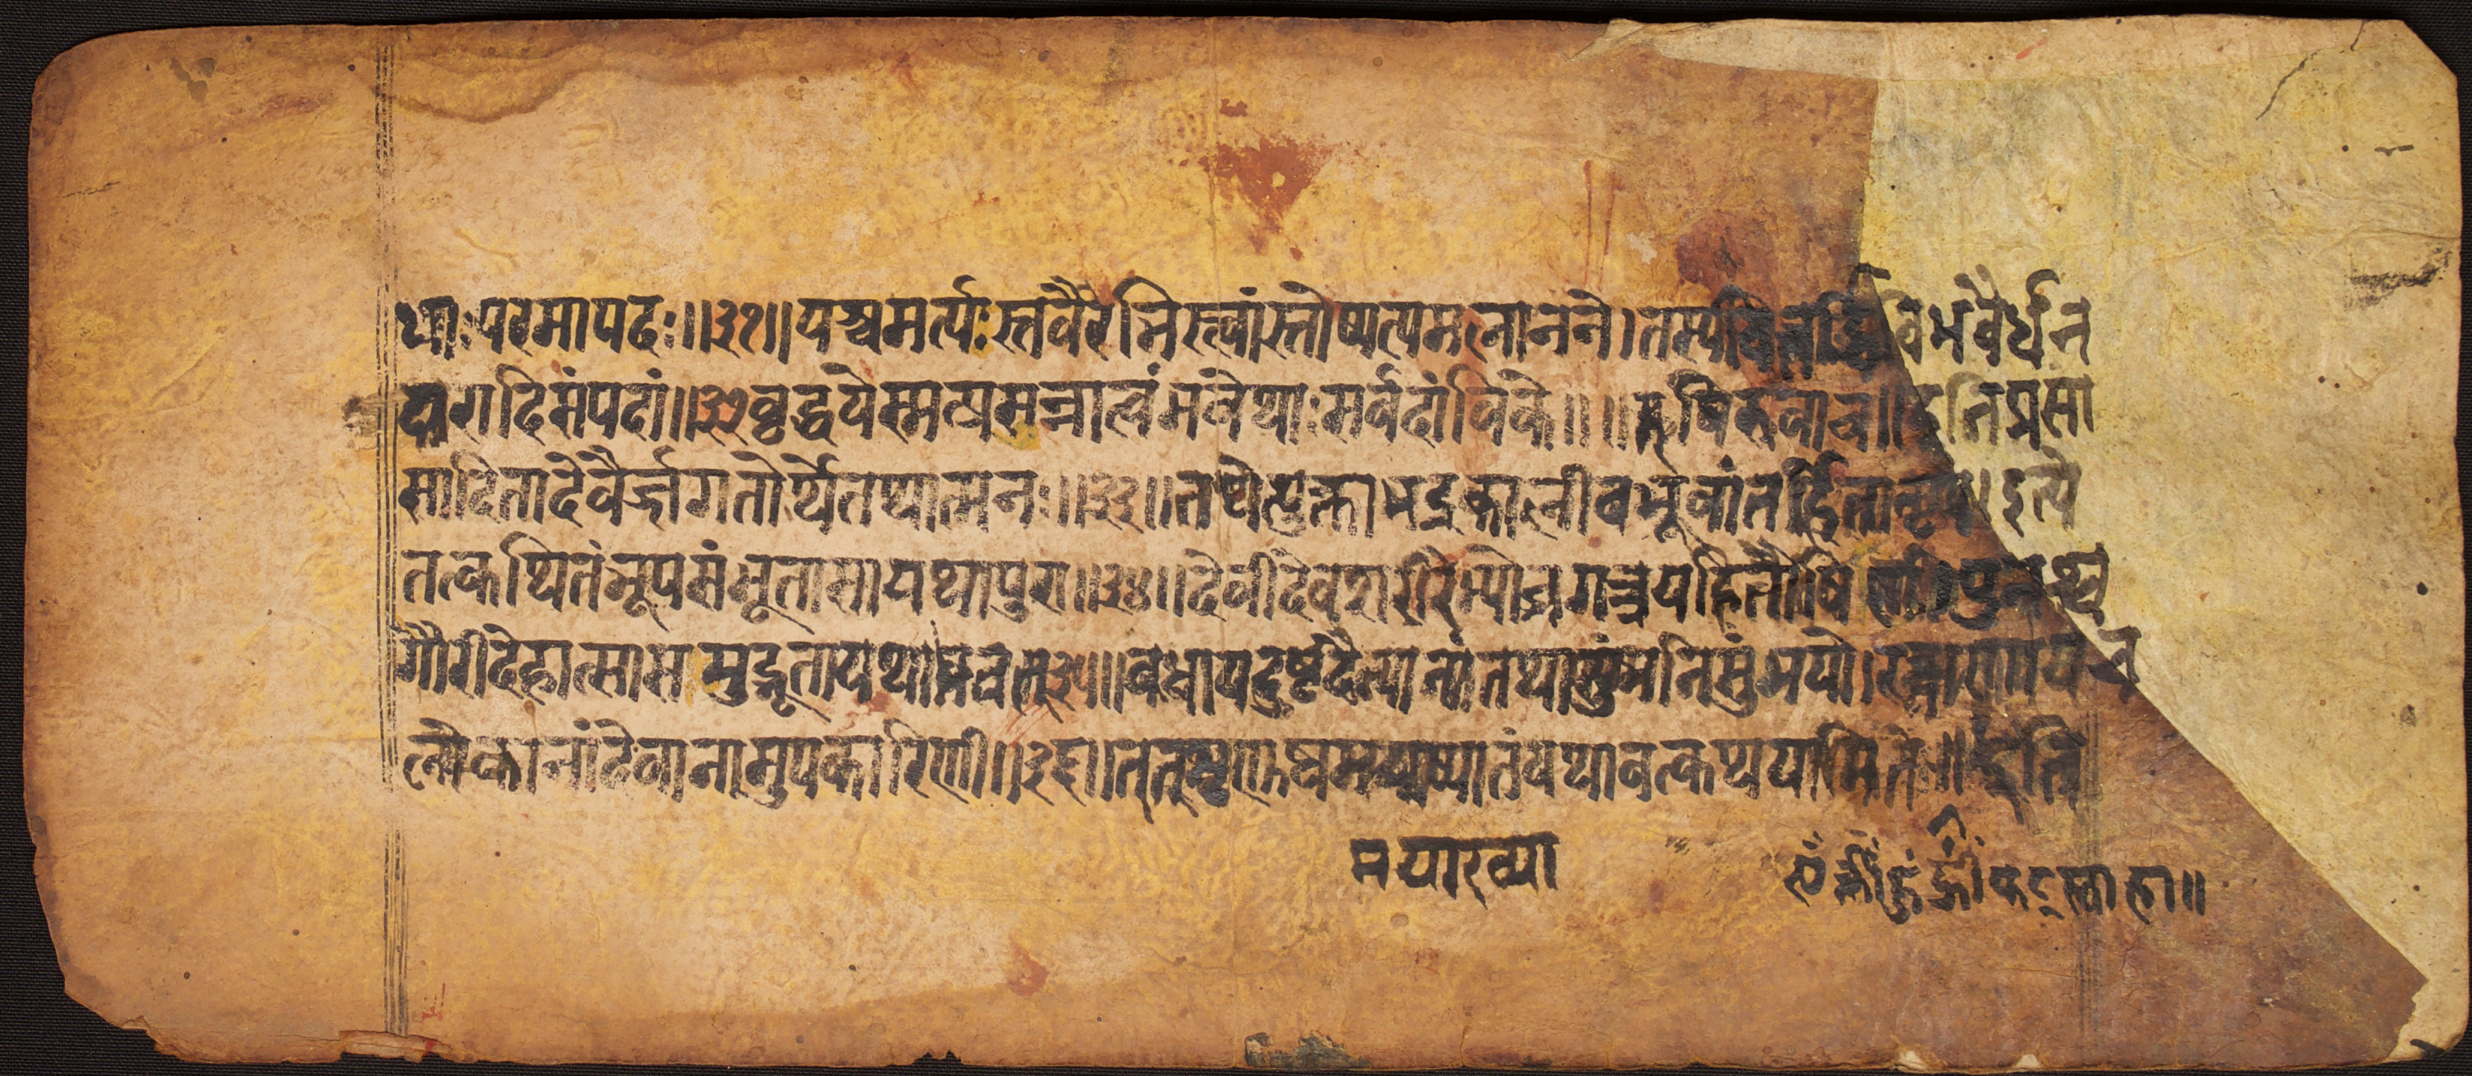 थाःपरमापदः॥३१॥यश्चमर्त्यःस्तवैरेभिस्त्वांस्तोष्यत्यमलानने।तस्यवित्तर्द्धिविभवैर्धन
दारादिसंपदां॥३२वृद्धयेस्मत्प्रसन्नात्वंभवेथाःसर्वदांविके॥॥ऋषिरुवाच॥इतिप्रसा
सादितादेवैर्ज्जगतोर्थेतथात्मनः॥३३॥तथेत्युक्ताभद्रकालीवभूवांतर्हितानृप।इत्ये
तत्कथितंभूपसंभूतासायथापुरा॥३४॥देवीदेवशरीरेभ्योजगत्त्रयहितैषिणी।पुनश्च
गौरीदेहात्सासमुद्भूतायथाभवत्३५॥वधायदुष्टदैत्यानांतथासुंभनिसुंभयो।रक्षणायच
लोकानांदेवानामुपकारिणी॥३६॥तत्शृणुष्वमयाख्यातंयथावत्कथयामिते॥इति
मयाख्या